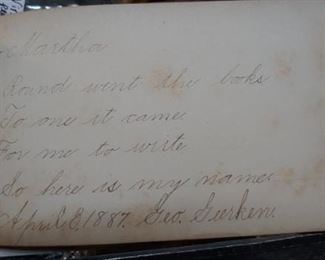 Martha
Round went the books
To me it came
For me to write
So here is my name.
April 8, 1887. Geo. Gerken.